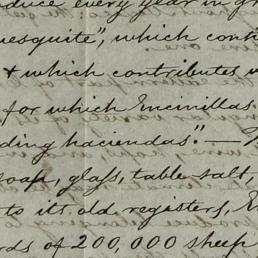 duce every year in gr
esquite", which conti
& which contributes
for which Encinillas
ding haciendas."—
soap, glass, table-salt,
to its old registers, E
rds of 200,000 sheep